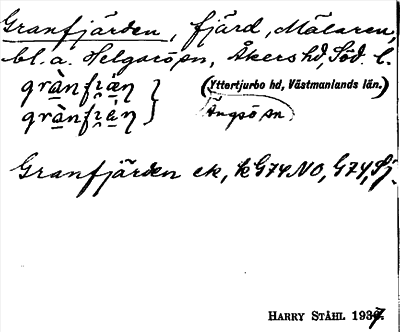 Granfjärden, fjärd, Mälaren,
bl. a. Helgarö sn, Åkers hd, Söd. l.
grànfjæ̣n } (Yttertjurbo hd, Västmanlands län.)
grànfjæ̀n } Ängsö sn
Granfjärden ek, k G74 NO, G74, Sj.
HARRY STÅHL 1937.